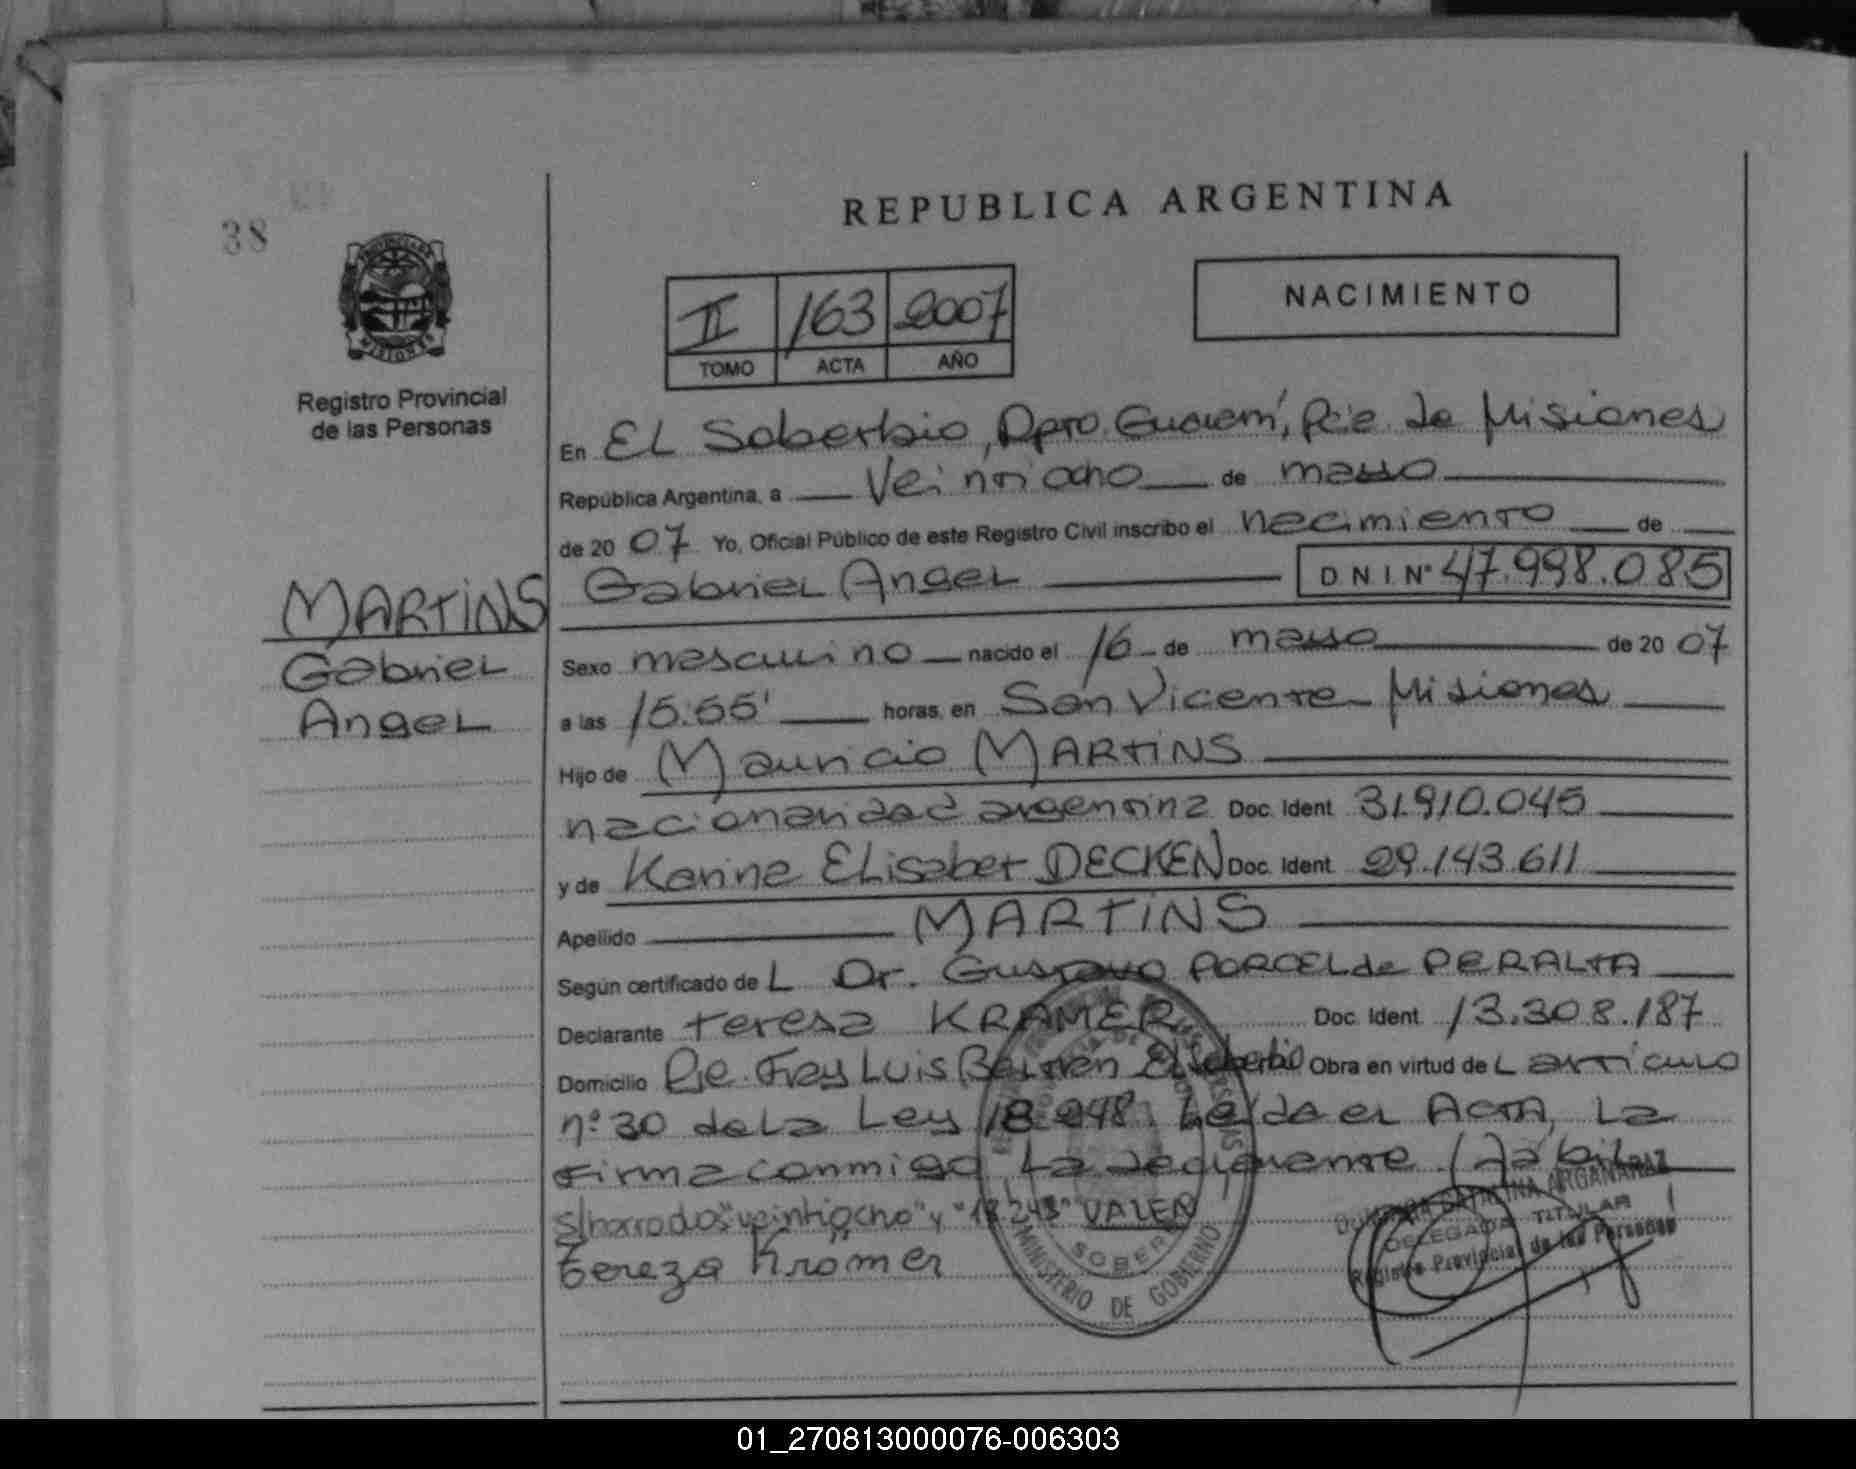 38
REPUBLICA ARGENTINA
PROVINCIA DE MISIONES
II 163 2007
TOMO ACTA AÑO
NACIMIENTO
Registro Provincial
de las Personas
En EL Soberbio, Dpto. Guarani, Pcia de Misiones
República Argentina, a Veintiocho de mayo
de 20 07 Yo, Oficial Público de este Registro Civil inscribo el nacimiento de
Gabriel Angel D N I. Nº 47.998.085
MARTINS
Gabriel
Angel
Sexo masculino nacido el 16 de mayo de 20 07
a las 15:55' horas, en San Vicente Misiones
Hijo de Mauricio MARTINS
nacionalidad argentina Doc. Ident 31.910.045
y de Karina ELisabet DECKEN Doc. Ident. 29.143.611
Apellido MARTINS
Según certificado de L Dr. Gustavo PORCEL de PERALTA
Declarante Teresa KRAMER Doc. Ident. 13.308.187
Domicilio Pje. Fray Luis Beltran El Soberbio Obra en virtud de L articulo
nº 30 de La Ley 18.248. Leida el ACTA, La
firma conmigo La declarante. (Habil)
S/borrados: "veintiocho" y "18.248" VALEN
Tereza Kramer
MINISTERIO DE GOBIERNO
CATALINA ARGAÑARAZ
DELEGADA TITULAR
Registro Provincial de las Personas
01_270813000076-006303